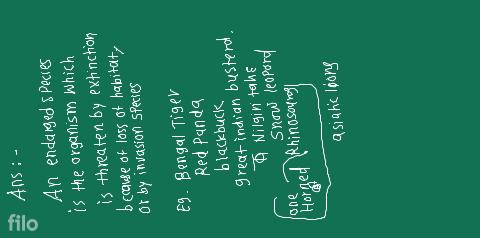 Ans :-
An endarged species
is the organism which
is threaten by extinction
because of loss of habitat,
or by invasion species
Eg. Bengal Tiger
Red Panda
blackbuck
great indian busterd.
Nilgiri tahr
Snow leopard
one Horned Rhinosaurs
asiatic lions
filo